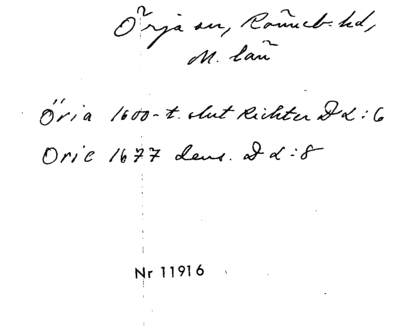 Õrja sn, Ronneb. hd,
M. län
Öria 1600-t. slut Richter D L:6
Orie 1677 dens. D L:8
Nr 11916